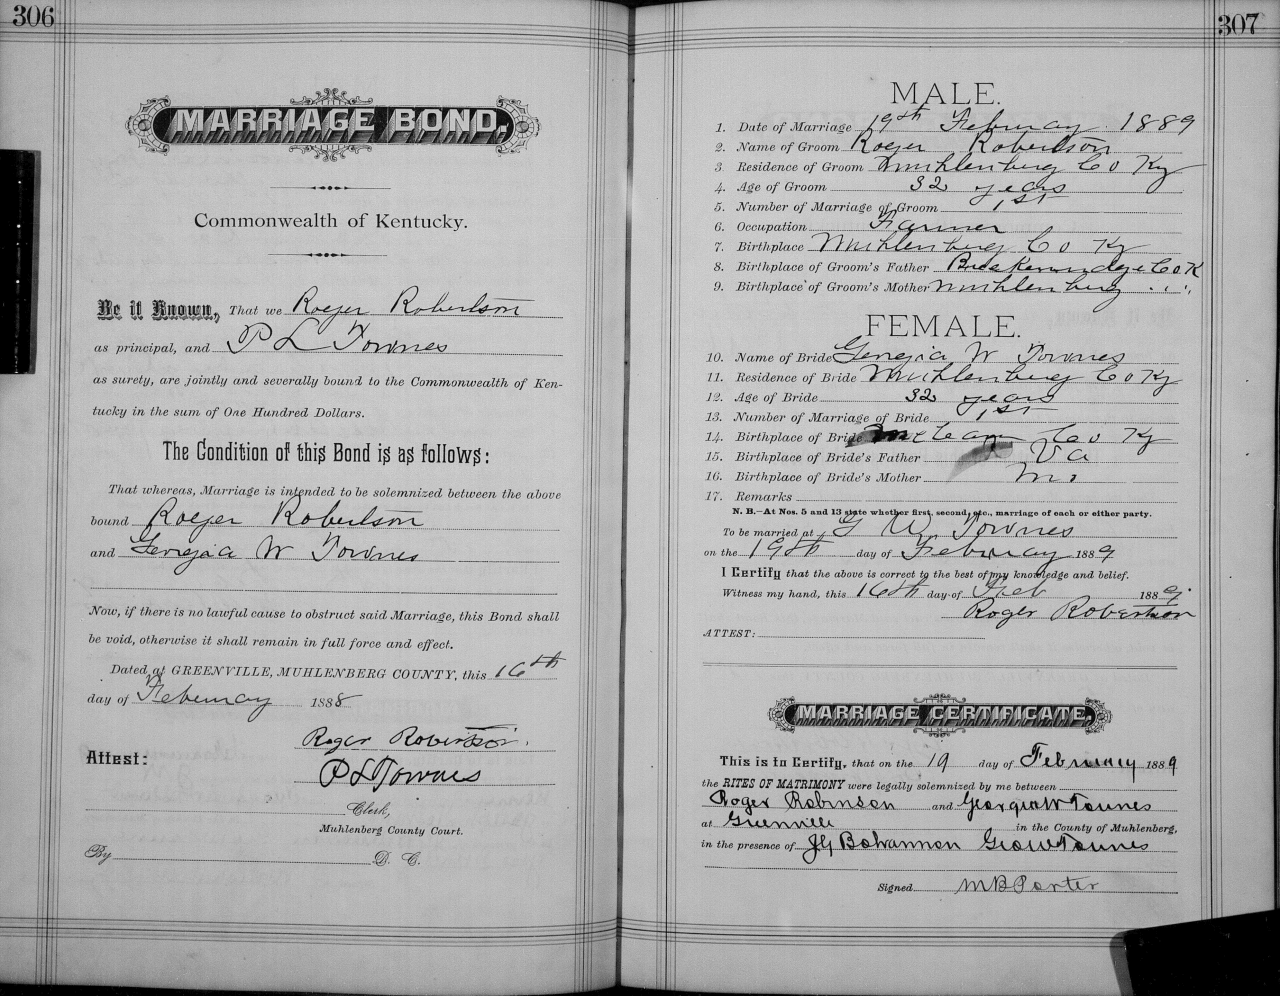 306
MARRIAGE BOND.
Commonwealth of Kentucky.
Be it Known, That we Roger Robertson
as principal, and P L Townes
as surety, are jointly and severally bound to the Commonwealth of Ken-
tucky in the sum of One Hundred Dollars.
The Condition of this Bond is as follows:
That whereas, Marriage is intended to be solemnized between the above
bound Roger Robertson
and Georgia W Townes
Now, if there is no lawful cause to obstruct said Marriage, this Bond shall
be void, otherwise it shall remain in full force and effect.
Dated at GREENVILLE, MUHLENBERG COUNTY, this 16th
day of February 1888
Roger Robertson.
Attest: P L Townes
Clerk,
Muhlenberg County Court.
By D. C.
307
MALE.
1. Date of Marriage 19th February 1889
2. Name of Groom Roger Robertson
3. Residence of Groom Muhlenberg Co Ky
4. Age of Groom 32 years
5. Number of Marriage of Groom 1st
6. Occupation Farmer
7. Birthplace Muhlenberg Co Ky
8. Birthplace of Groom's Father Breckenridge Co K
9. Birthplace of Groom's Mother Muhlenberg " "
FEMALE.
10. Name of Bride Georgia W Townes
11. Residence of Bride Muhlenberg Co Ky
12. Age of Bride 32 years
13. Number of Marriage of Bride 1st
14. Birthplace of Bride McLean Co Ky
15. Birthplace of Bride's Father Va
16. Birthplace of Bride's Mother Mo
17. Remarks
N. B.—At Nos. 5 and 13 state whether first, second, etc., marriage of each or either party.
To be married at G W Townes
on the 19th day of February 1889
I Certify that the above is correct to the best of my knowledge and belief.
Witness my hand, this 16th day of Feb 1889.
Roger Robertson
ATTEST:
MARRIAGE CERTIFICATE.
This is to Certify, that on the 19 day of February 1889
the RITES OF MATRIMONY were legally solemnized by me between
Roger Robinson and Georgia W Townes
at Greenville in the County of Muhlenberg,
in the presence of JG Bohannon Geo W Townes
Signed M B Porter